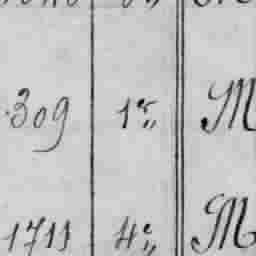 309 1er M
1711 4e M